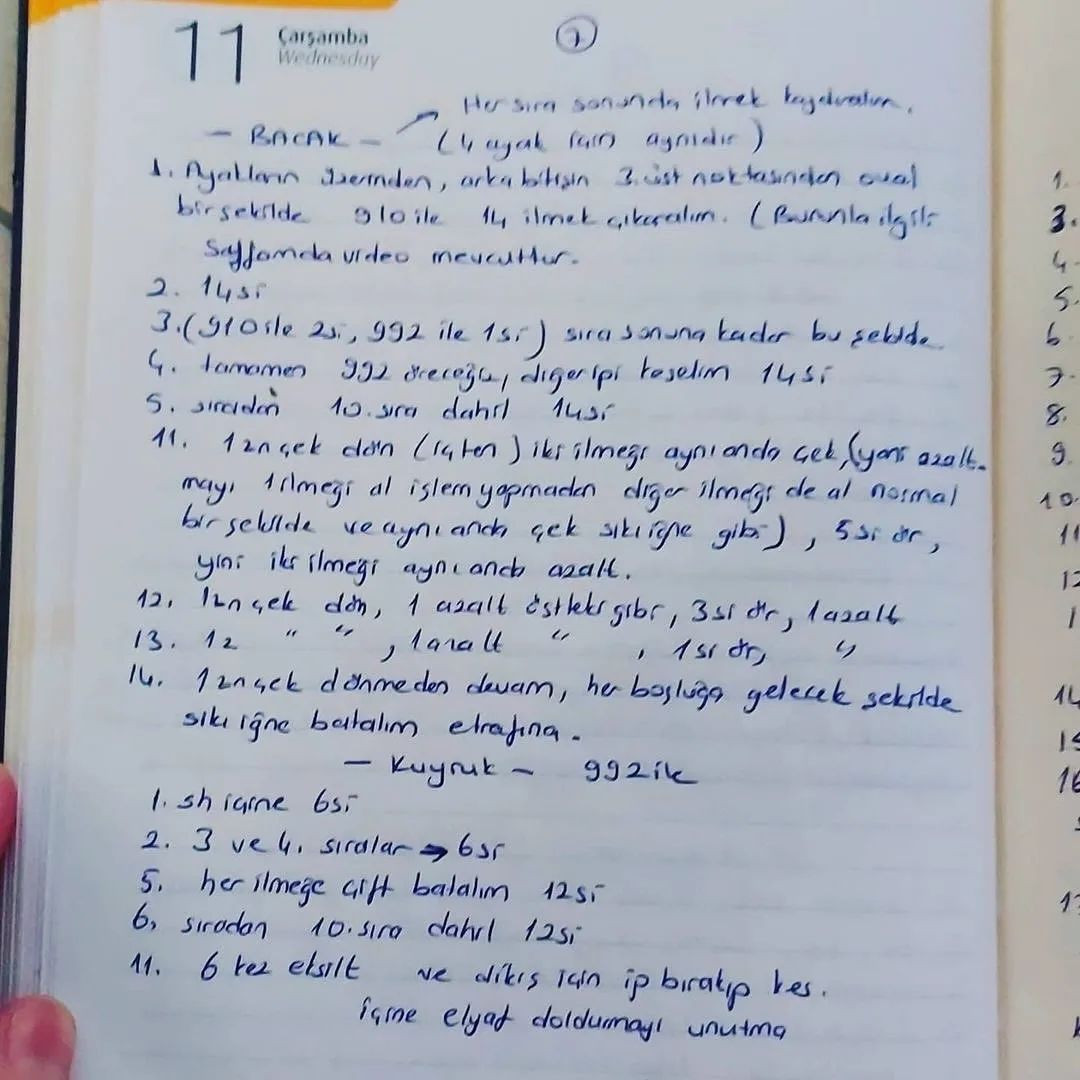 11 Çarşamba
Wednesday
7
Her sıra sonunda ilmek kaydıralım.
- BACAK - (4 ayak için aynıdır)
1. Ayakların üzerinden, arka bitişin 3. üst noktasından oval
bir şekilde 910 ile 14 ilmek çıkaralım. (Bununla ilgili
Sayfamda video mevcuttur.
2. 14si
3. (910 ile 2si, 992 ile 1si) sıra sonuna kadar bu şekilde
4. tamamen 992 öreceğiz, diğer ipi keselim 14si
5. sıradan 10. sıra dahil 14si
11. 1zn çek dön (içten) iki ilmeği aynı anda çek, (yani azalt-
mayı 1 ilmeği al işlem yapmadan diğer ilmeği de al normal
bir şekilde ve aynı anda çek sık iğne gibi), 5si ör,
yini iki ilmeği aynı anda azalt.
12. 1zn çek dön, 1 azalt üstteki gibi, 3si ör, 1azalt
13. 1z " " , 1azalt " , 1si ör, "
14. 1zn çek dönmeden devam, her boşluğa gelecek şekilde
sık iğne batalım etrafına.
- Kuyruk - 992ile
1. sh içine 6si
2. 3 ve 4. sıralar → 6si
5. her ilmeğe çift batalım 12si
6, sıradan 10. sıra dahil 12si
11. 6 kez eksilt ve dikiş için ip bırakıp kes.
içine elyaf doldurmayı unutma
1.
3.
4.
5.
6.
7.
8.
9.
10.
11
12
1
14
15
16